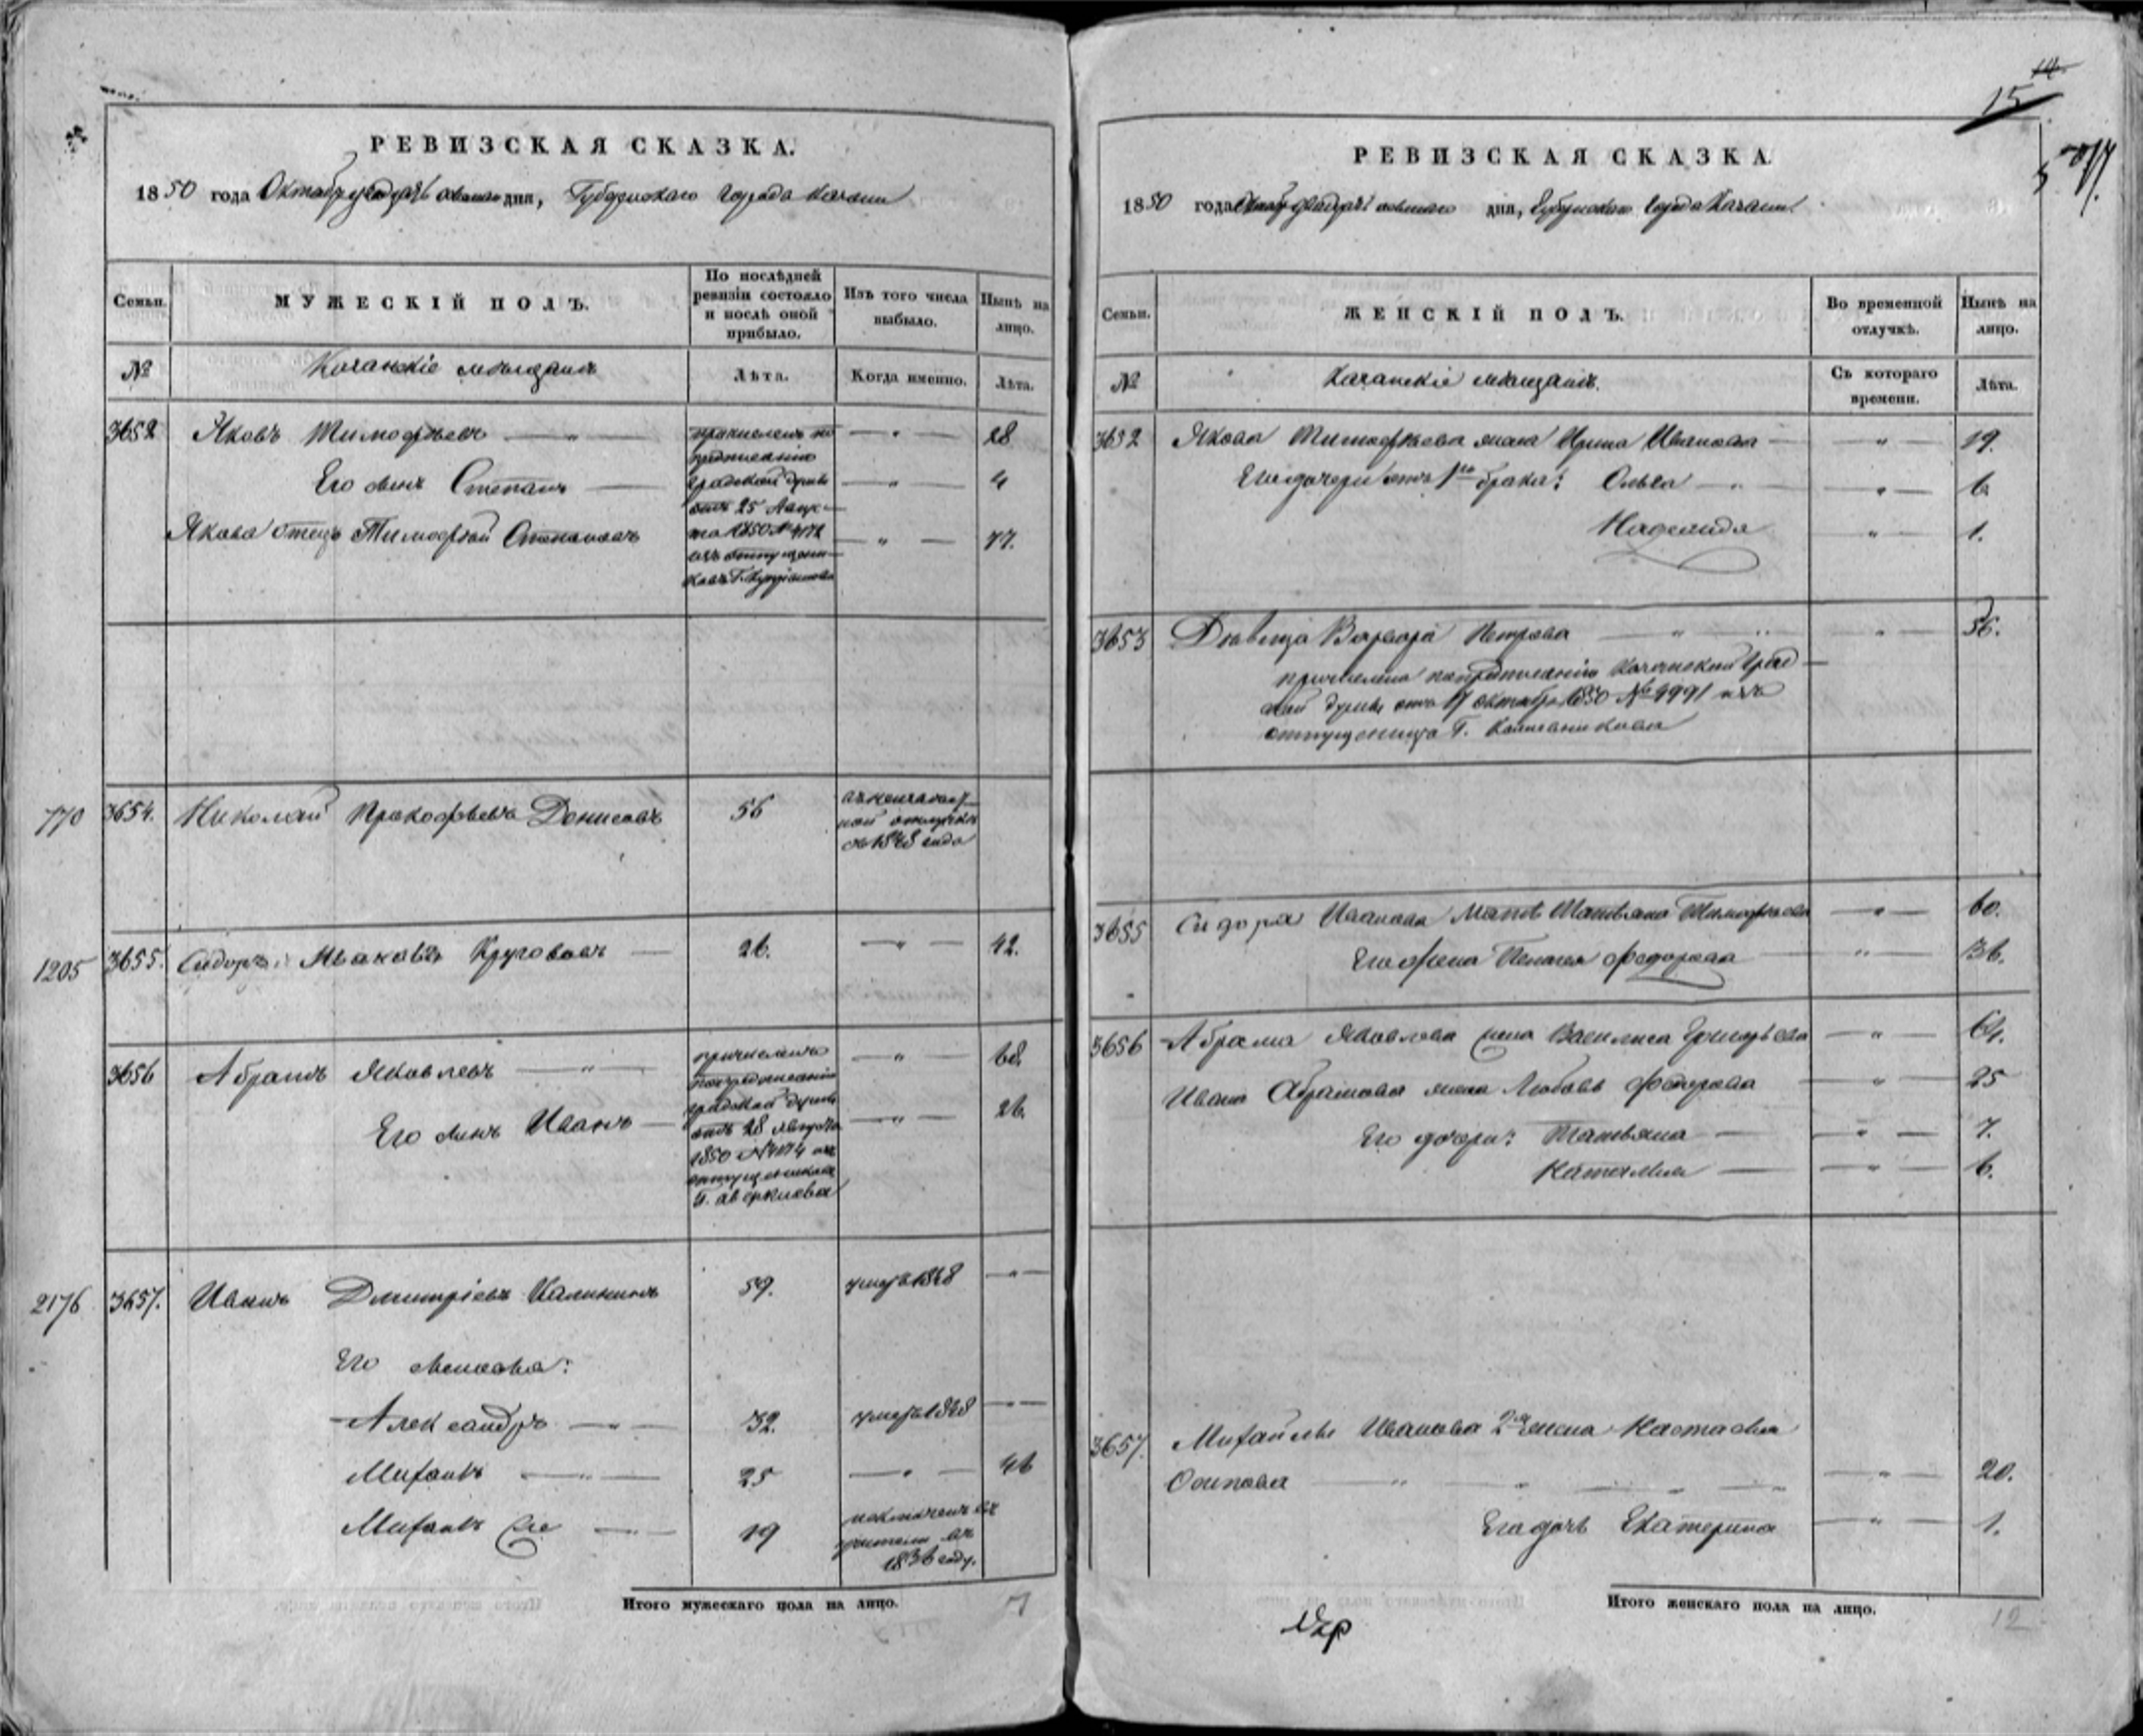 РЕВИЗСКАЯ СКАЗКА.
1850 года Октября двадцать дня, Губернскаго города Казани
Семьи.
МУЖЕСКІЙ ПОЛЪ.
По послѣдней ревизіи состояло и послѣ оной прибыло.
Изъ того числа выбыло.
Нынѣ на лицо.
№
Казанскіе мѣщанъ
Лѣта.
Когда именно.
Лѣта.
3652 Яковъ Тимофѣевъ — " — 28
Его сынъ Степанъ — " — 4
Якова отецъ Тимофей Степановъ — " — 77.
причисленъ по
предписанію
градской думы
отъ 25 Авгус-
та 1850 №
изъ отпущен-
никовъ Г.
770 3654. Николай Прокофьевъ Денисовъ 56
отлучкѣ
съ 1848 года
1205 3655. Сидоръ Ивановъ Кругововъ — 26. — " — 42.
3656 Абрамъ Яковлевъ — " — 68.
Его сынъ Иванъ — " — 26.
причисленъ
по предписанію
градской думы
отъ 28 Августа
1850 №
отпущенниковъ
Г. Аверкиева
2176 3657. Иванъ Дмитріевъ Калининъ 59. умеръ 1848 — " —
Его сыновья:
Александръ — " — 32. умеръ 1848 — " —
Михаилъ — " — 25 — " — 46
Михаилъ же — " — 19
въ
1836 году.
Итого мужескаго пола на лицо. 7
15
РЕВИЗСКАЯ СКАЗКА.
1850 года дня, Губернскаго города Казани.
Семьи.
ЖЕНСКІЙ ПОЛЪ.
Во временной отлучкѣ.
Нынѣ на лицо.
№
Казанскіе мѣщанъ.
Съ котораго времени.
Лѣта.
3652 Якова Тимофѣева жена Ирина Иванова — " — 19.
Его дочери отъ 1го брака: Ольга — " — 6
Надежда — " — 1.
3653 Дѣвица Варвара Петрова — " — 56.
причислена по предписанію Казанской Град-
ской думы отъ 17 Октября 1850 № 9991 изъ
отпущеницъ Г.
3655 Сидора Иванова мать Татьяна Тимофѣева — " — 60.
Его жена Пелагея Федорова — " — 36.
3656 Абрама Яковлева жена Василиса Григорьева — " — 64.
Ивана Абрамова жена Любовь Федорова — " — 25
Его дочери: Татьяна — " — 7.
— " — 6.
3657. Михайлы Иванова 2я жена Настасья
Осипова — " — 20.
Его дочь Екатерина — " — 1.
Итого женскаго пола на лицо. 12